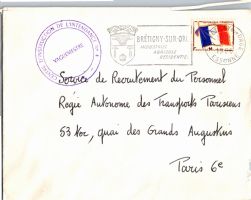 CENTRE D'INSTRUCTION DE L'INTENDANCE N° 1
VAGUEMESTRE
BRÉTIGNY-SUR-ORGE
INDUSTRIELLE
AGRICOLE
RESIDENTIEL
ESSONNE
Service de Recrutement du Personnel
Régie Autonome des Transports Parisiens
53 ter, quai des Grands Augustins
Paris 6e